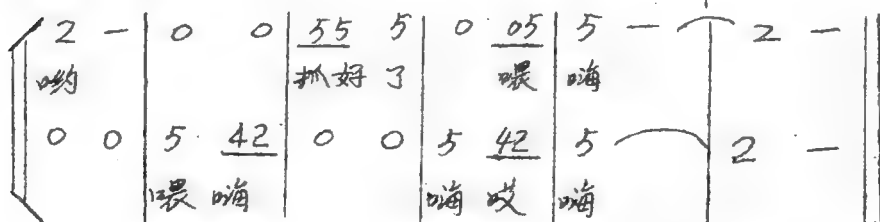 2 - | 0 0 | 55 5 | 0 05 | 5 - | 2 - ‖
哟 抓好了 嗯 嗨
0 0 | 5· 42 | 0 0 | 5 42 | 5 | 2 -
嗨 嗨 哎 嗨